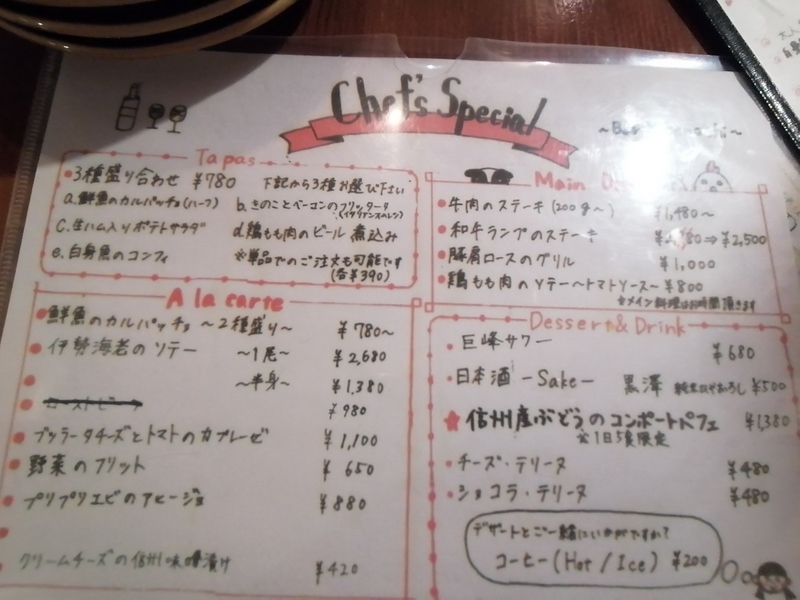 Chef's Special
Tapas
・3種盛り合わせ ¥780 下記から3種お選び下さい
a.鮮魚のカルパッチョ(ハーフ) b.きのことベーコンのフリッタータ
(イタリアンオムレツ)
c.生ハム入りポテトサラダ d.鶏もも肉のビール煮込み
e.白身魚のコンフィ ※単品でのご注文も可能です
(各¥390)
A la carte
・鮮魚のカルパッチョ ～2種盛り～ ¥780～
・伊勢海老のソテー ～1尾～ ¥2,680
～半身～ ¥1,380
¥980
・ブッラータチーズとトマトのカプレーゼ ¥1,100
・野菜のフリット ¥650
・プリプリエビのアヒージョ ¥880
クリームチーズの信州味噌漬け ¥420
Main
・牛肉のステーキ(200g～) ¥1,480～
・和牛ランプのステーキ ⇒¥2,500
・豚肩ロースのグリル ¥1,000
・鶏もも肉のソテー～トマトソース～ ¥800
☆メイン料理はお時間頂きます
Dessert&Drink
・巨峰サワー ¥680
・日本酒 -Sake- 黒澤 ¥500
★信州産ぶどうのコンポートパフェ ¥1,380
☆1日5食限定
・チーズ・テリーヌ ¥480
・ショコラ・テリーヌ ¥480
デザートとご一緒にいかがですか?
コーヒー(Hot/Ice) ¥200